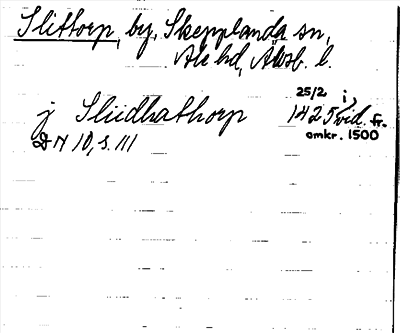 Slittorp, by, Skepplanda sn,
Ale hd, Älvsb. l.
25/2 i
j Sliidhathorp 1425 vid. fr.
omkr. 1500
DN 10, s. 111